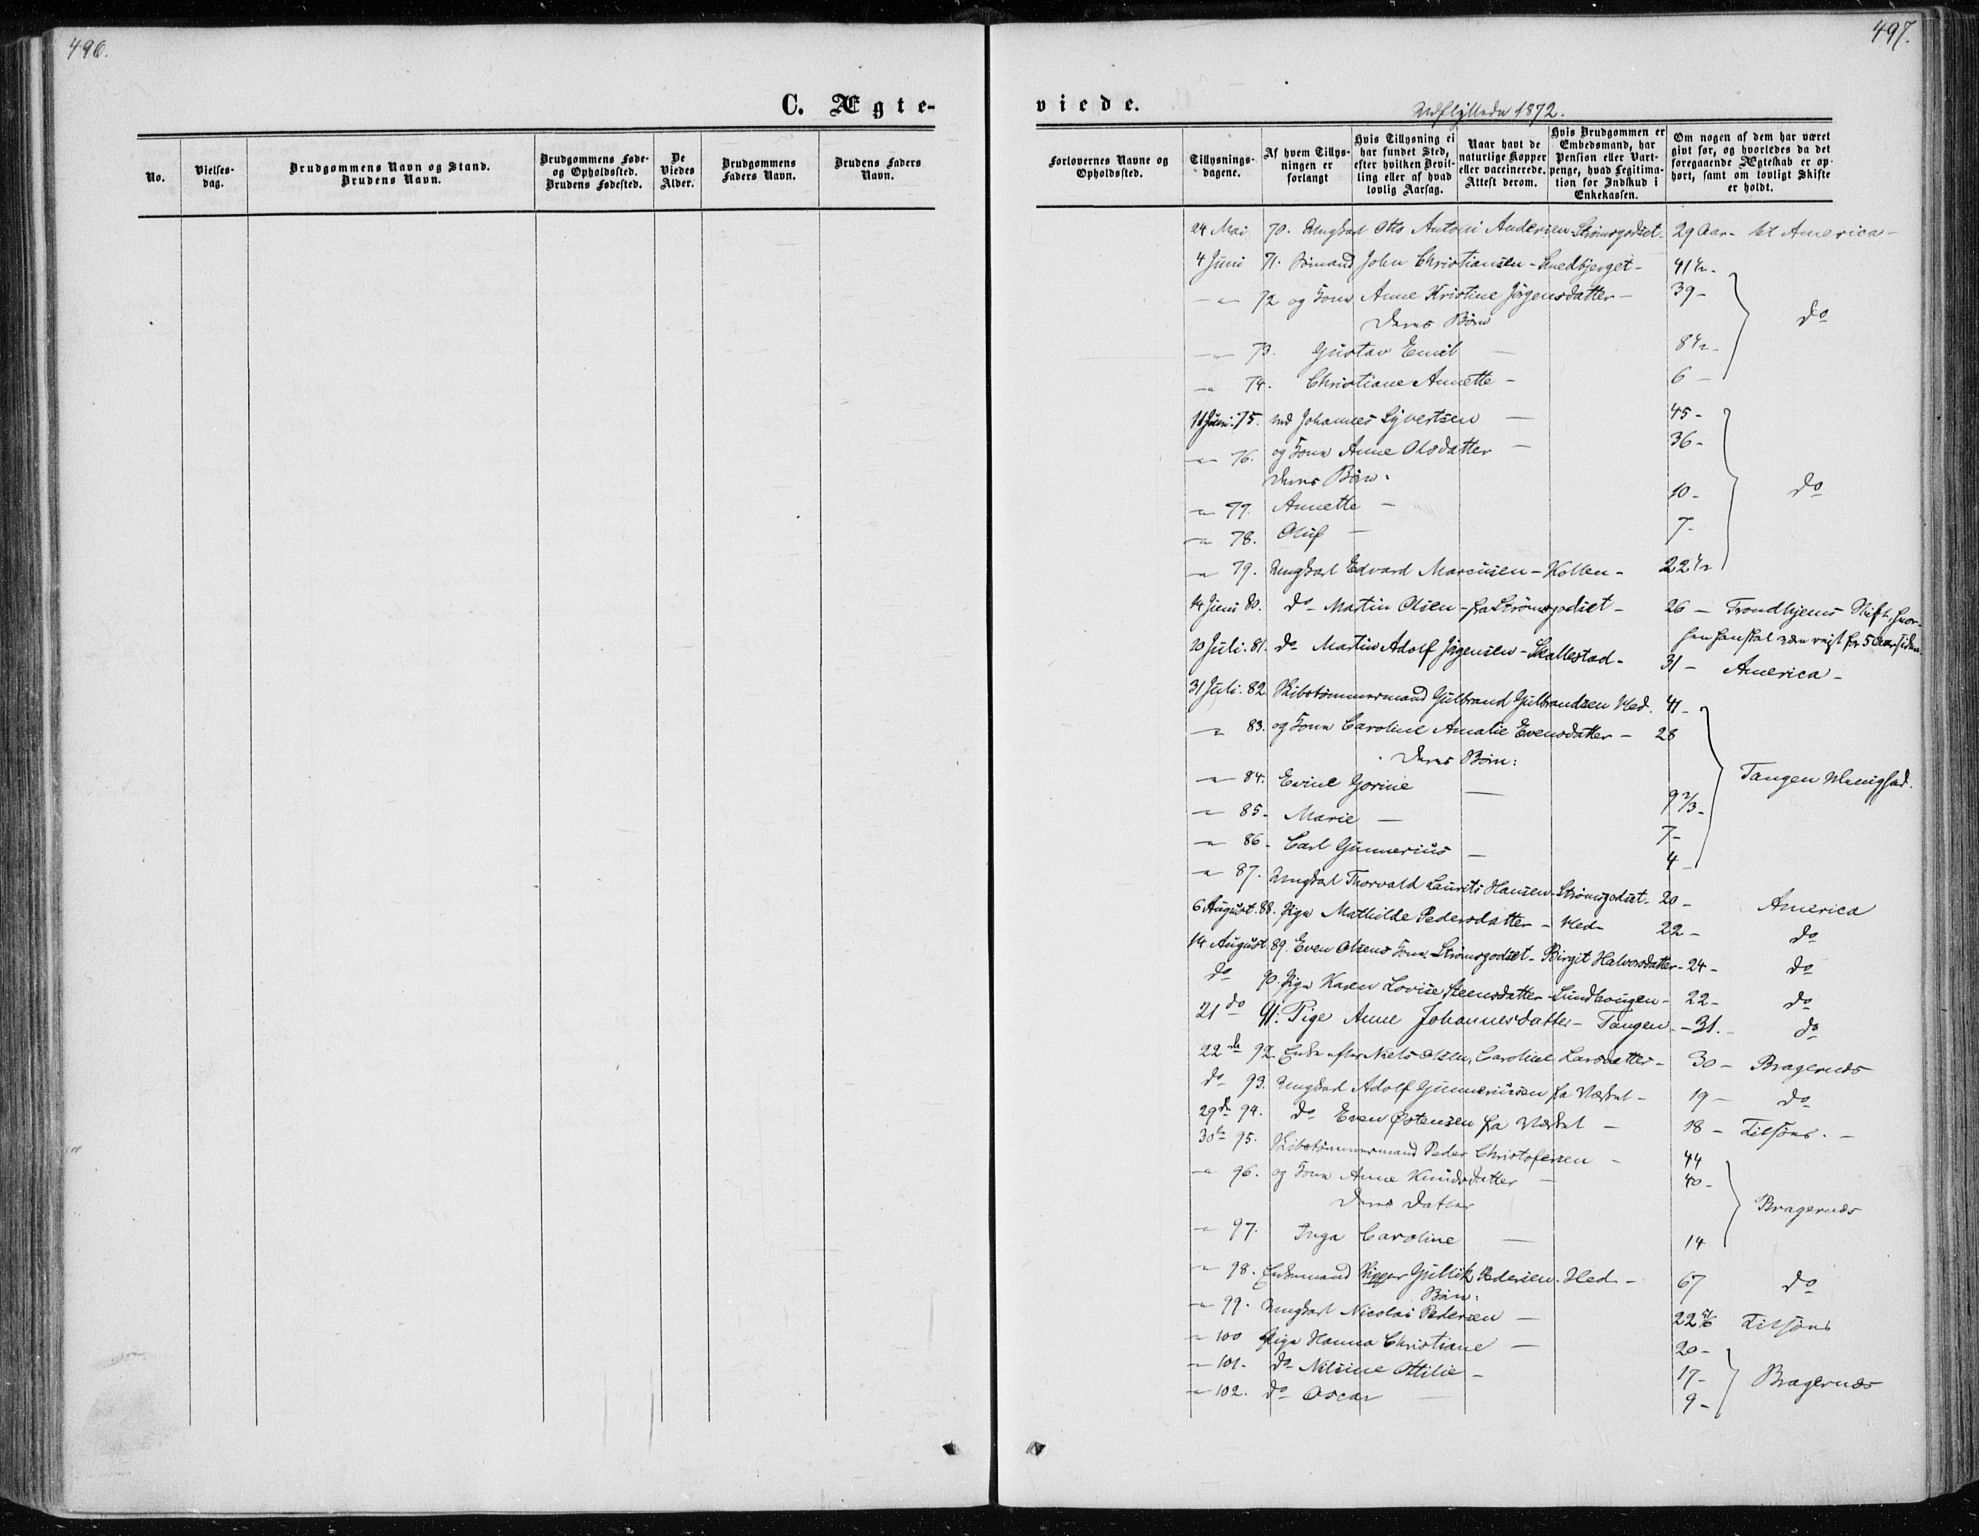 496.
497.
C. Ægte-
viede.
Udflyttede 1872.
No.
Vielses-
dag.
Brudgommens Navn og Stand.
Brudens Navn.
Brudgommens Føde-
og Opholdssted.
Brudens Fødested.
De
Viedes
Alder.
Brudgommens
Faders Navn.
Brudens Faders
Navn.
Forlovernes Navne og
Opholdssted.
Tillysnings-
dagene.
Af hvem Tillys-
ningen er
forlangt
Hvis Tillysning ei
har fundet Sted,
efter hvilken Bevil-
ling eller af hvad
lovlig Aarsag.
Naar havt de
naturlige Kopper
eller vaccinerede.
Attest derom.
Hvis Brudgommen er
Embedsmand, har
Pension eller Vart-
penge, hvad Legitima-
tion for Indskud i
Enkekassen.
Om nogen af dem har været
givt før, og hvorledes da det
foregaaende Ægteskab er op-
hørt, samt om lovligt Skifte
er holdt.
24 Mai 70. Ungkarl Otto Antoni Andersen - Strømsgodset - 29 Aar - til America -
4 Juni 71. Sømand John Christiansen - Smedbjerget - 41 1/2 -
-"- 72 og Kone Anne Kristine Jörgensdatter - 39 -
Deres Børn do
-"- 73. Gustav Emil - 8 1/2 -
-"- 74. Christiane Annette - 6 -
11 Juni 75. Johannes Syvertsen - 45 -
-"- 76. og Kone Anne Olsdatter - 36 -
Deres Børn: do
-"- 77. Annette - 10 -
-"- 78. Oluf - 7 -
-"- 79. Ungkarl Edvard Marcusen - Kollen - 22 1/2
14 Juni 80. do - Martin Olsen - fra Strömsgodset - 26 - Trondhjems Stift, hvor-
hen han skal være rejst for 5 Aar siden.
20 Juli 81. do Martin Adolf Jörgensen - Skallestad - 31 - America -
31 Juli. 82. Skibstømmermand Gulbrand Gulbrandsen Hed. 41 -
-"- 83. og Kone Caroline Amalie Evensdatter - 28
Deres Børn:
-"- 84. Evine Gorine - 9 2/3 - Tangen Menighed.
-"- 85. Marie - 7 -
-"- 86. Carl Gunnerius - 4 -
-"- 87. Ungkarl Thorvald Laurits Hansen - Strömsgodset - 20 - America
6 August. 88. Pige Mathilde Pedersdatter - Hed - 22 - do
14 August 89. Even Olsens Kone - Strömsgodset - Birgit Halvorsdatter - 24 - do
do 90. Pige Karen Lovise Steensdatter - Lundhougen - 22 - do
21 do 91. Pige Anne Johannesdatter - Tangen - 31. - do
22 do 92. Enke efter Niels Olsen, Caroline Larsdatter - 30 - Bragernæs
do 93. Ungkarl Adolf Gunneriusen fra - 19 - do
29 do 94. do Even Østensen fra - 18 -
30 do 95. Skibstømmermand Peder Christofersen - 44
-"- 96. og Kone Anne Knudsdatter - 40 -
Deres Datter Bragernæs
-"- 97. Inga Caroline - 14
-"- 98. Enkemand Rigger Gullik Pedersen - Hed - 67 do
Børn:
-"- 99. Ungkarl Nicolai Pedersen - 22 5/6
-"- 100 Pige Hanna Christiane - 20 -
-"- 101. do Nilsine Ottilie - 17 - Bragernæs
-"- 102. do Oscar - 9 -